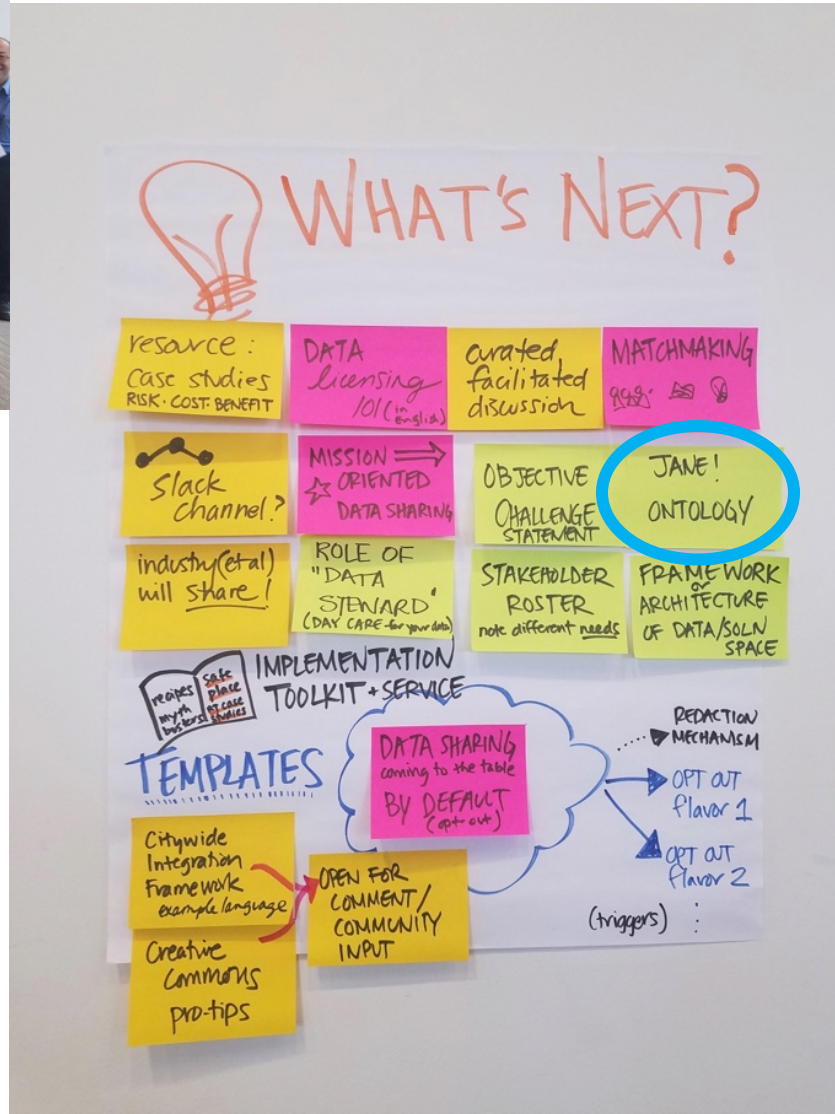 WHAT'S NEXT?
resource:
case studies
RISK·COST·BENEFIT
DATA
licensing
101 (in english)
curated,
facilitated
discussion
MATCHMAKING
Slack
channel?
MISSION
ORIENTED
DATA SHARING
OBJECTIVE
CHALLENGE
STATEMENT
JANE!
ONTOLOGY
industry (etal)
will share!
ROLE OF
"DATA
STEWARD"
(DAY CARE for your data)
STAKEHOLDER
ROSTER
note different needs
FRAMEWORK
or
ARCHITECTURE
OF DATA/SOLN
SPACE
recipes
myth
busters
safe
place
studies
IMPLEMENTATION
TOOLKIT + SERVICE
TEMPLATES
DATA SHARING
coming to the table
BY DEFAULT
(opt-out)
REDACTION
MECHANISM
OPT OUT
flavor 1
OPT OUT
flavor 2
(triggers)
Citywide
Integration
Framework
example language
OPEN FOR
COMMENT/
COMMUNITY
INPUT
Creative
Commons
pro-tips